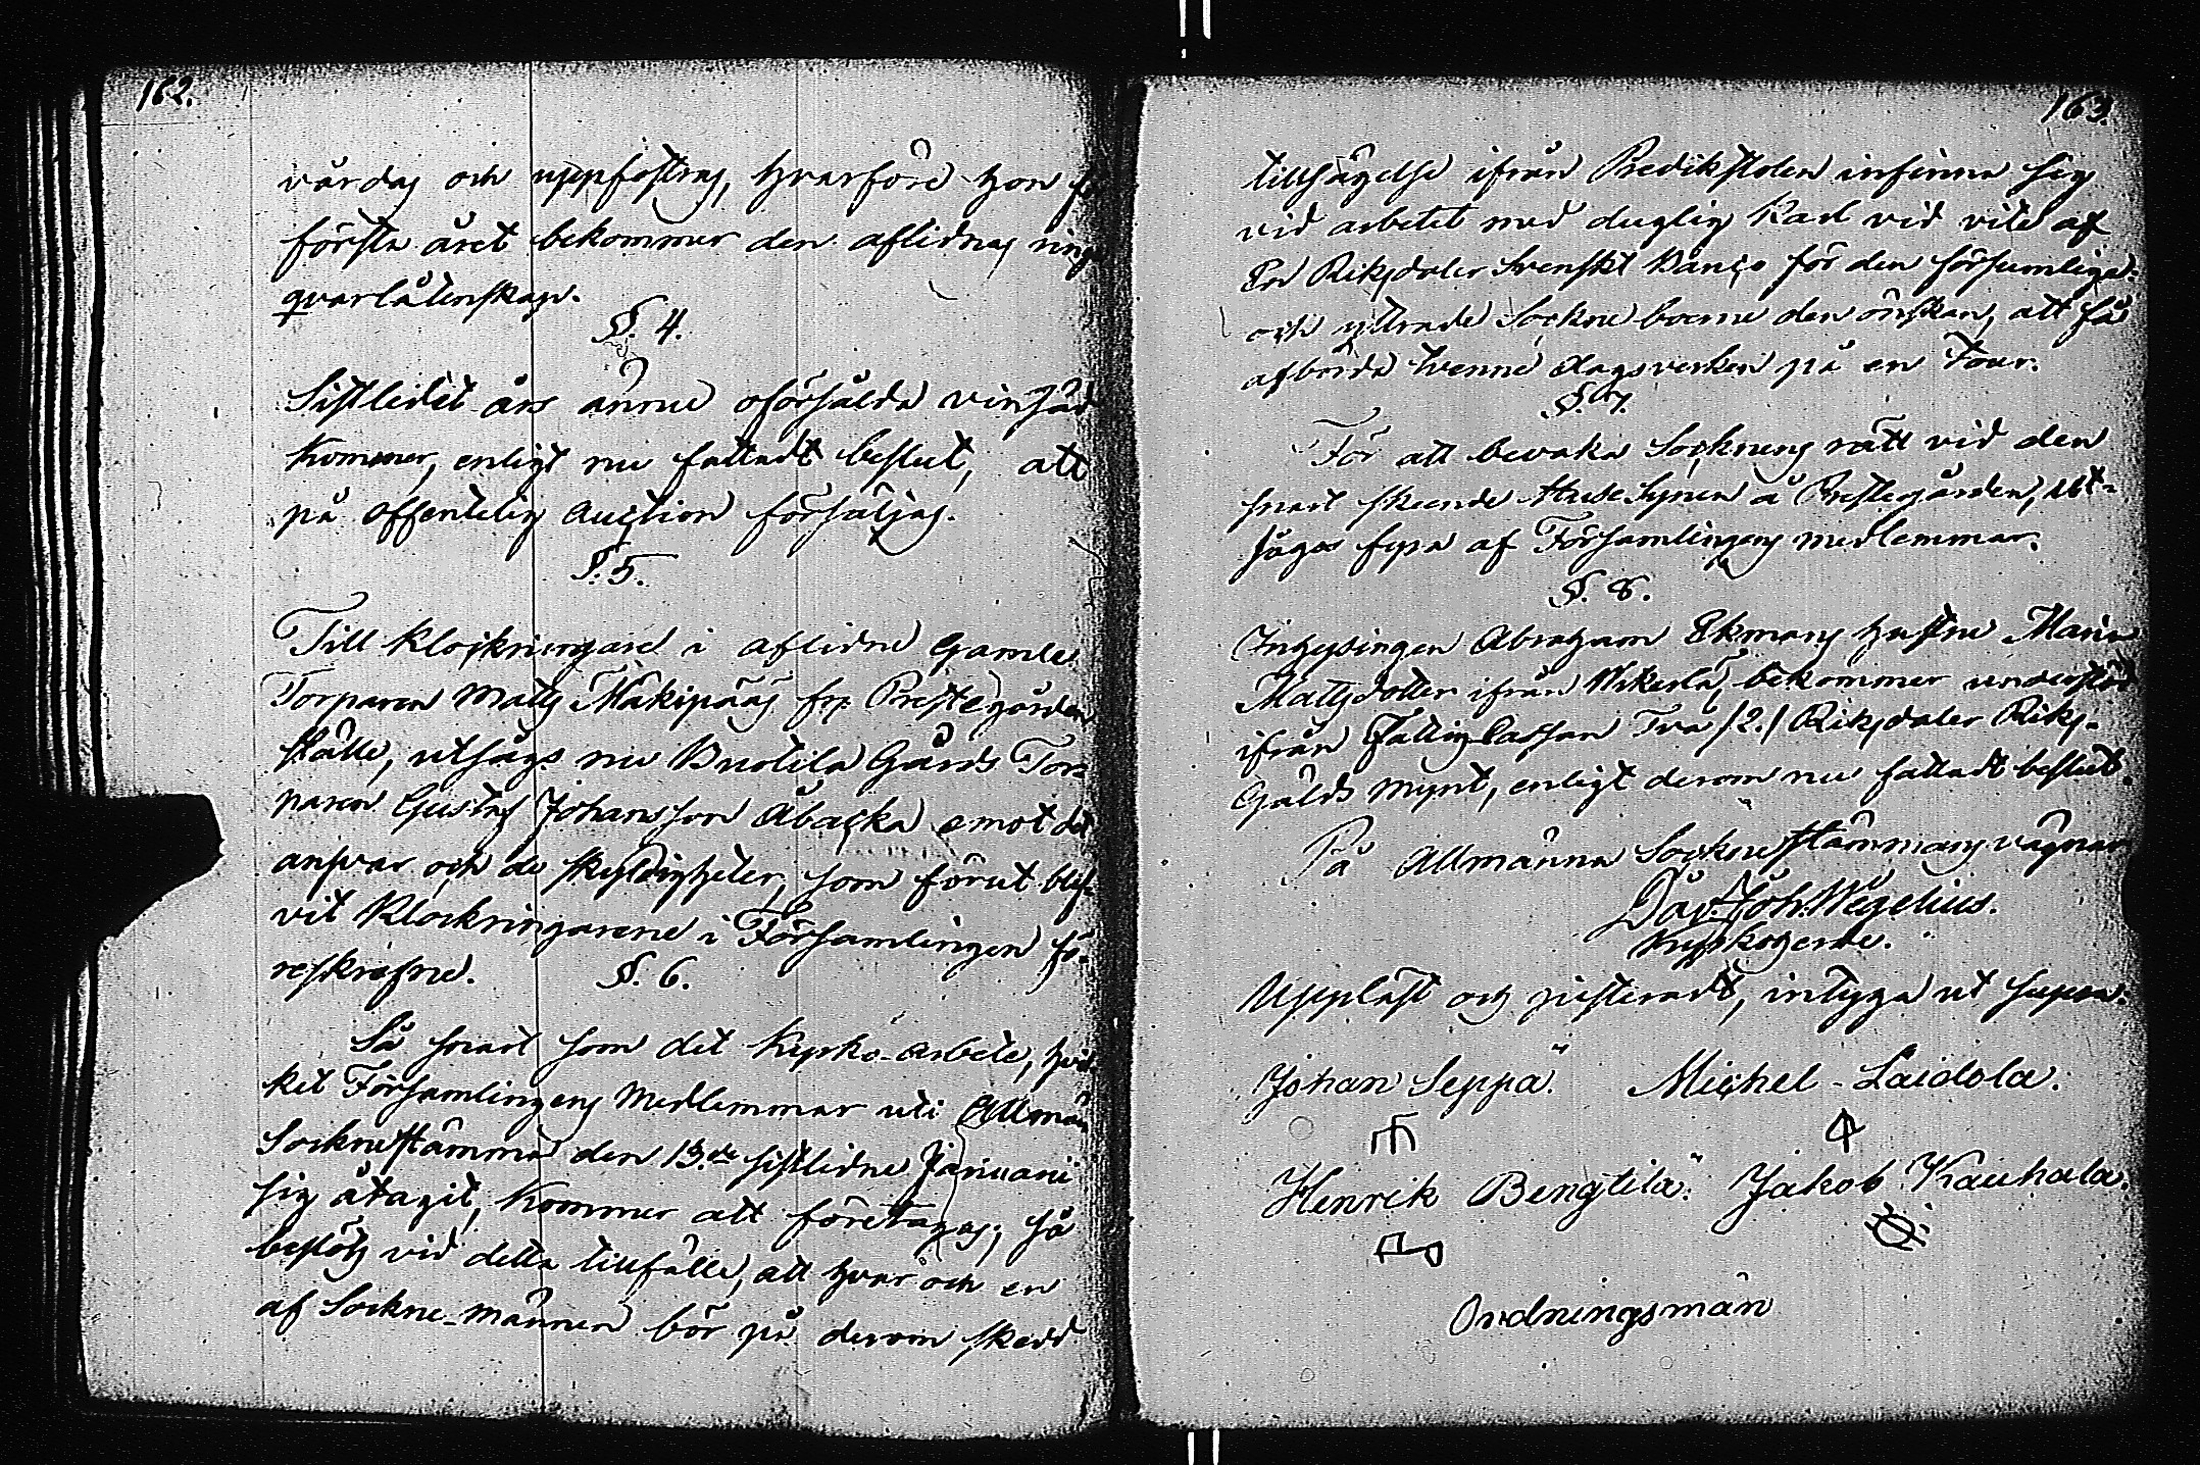 162.
vårdas och uppfostras, hvarföre hon
första året bekommer den aflidnas ringa
qvarlåtenskap.
§. 4.
Sistledit års ännu oförsålda vinsäd
kommer, enligt nu fattadt beslut, att
på offentelig auction försäljas.
§. 5.
Till Klockringare i aflidne Gamle
Torparen Matts Mäkipääs frn Prestegården
ställe, utsågs nu Buotila Gårds Tor-
paren Gustaf Johansson Åbacka emot det
answar och de skyldigheter, som förut blif-
vit Klockringarene i Församlingen fö-
reskrifne.
§. 6.
Så snart som det Kyrko-arbete, hvil-
ket Församlingens Medlemmar uti Allmän
Sockne stämma den 13.de sistledne Januarii
sig åtagit, kommer att företagas; så
beslöts vid detta tillfälle, att hvar och en
af Sockne-männen bör på derom skedd
163.
tillsägelse ifrån Predikstolen infinna sig
vid arbetet med duglig Karl vid vite af
En Riksdaler Svenskt Banco för den försumliga.
och yttrade Sockne boerne den önskan, att få
afbörda tvenne dagsverken på en Tour.
§. 7.
För att bevaka Socknens rätt vid den
snart skeende Huse Synen å Prestegården, ut-
sågos fyra af Församlingens medlemmar.
§. 8.
Inhysingen Abraham Ekmans hustru Maria
Mattsdotter ifrån Wikerlä, bekommer understöd
ifrån Fattig Cassan Två /2./ Riksdaler Riks-
Gälds Mynt, enligt derom nu fattadt beslut.
På Allmänna Sockne Stämmans vägnar
Dav. Joh. Wegelius.
Kyrkoherde.
Uppläst och justeradt, intyga ut supra.
Johan Seppä. Michel Laidola.
Henrik Bengtilä. Jakob Kauhala.
Ordningsmän